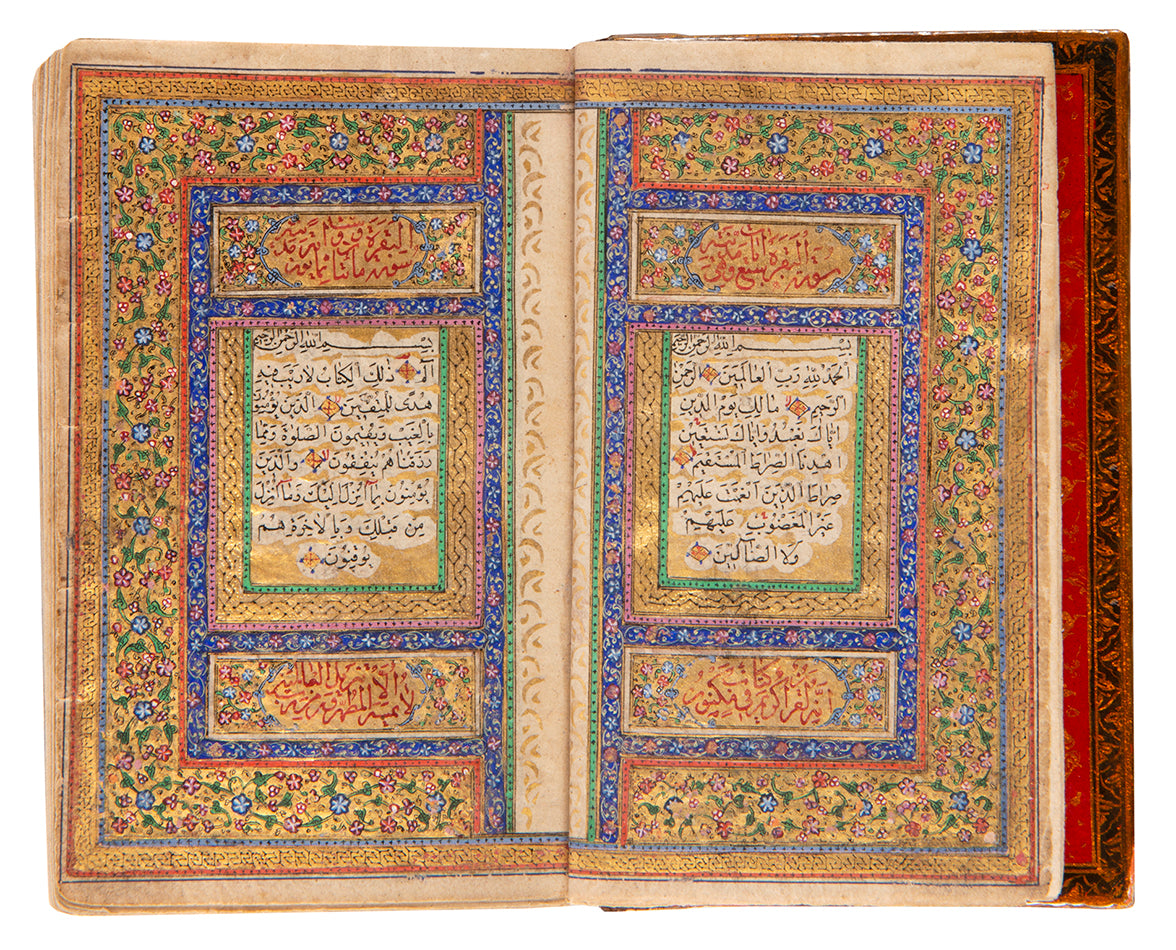 بسم الله الرحمن الرحيم
الحمد لله رب العالمين الرحمن
الرحيم مالك يوم الدين
اياك نعبد واياك نستعين
اهدنا الصراط المستقيم
صراط الذين انعمت عليهم
غير المغضوب عليهم
ولا الضالين
انه لقرآن كريم في كتاب مكنون
بسم الله الرحمن الرحيم
الم ذلك الكتاب لا ريب فيه
هدى للمتقين الذين يؤمنون
بالغيب ويقيمون الصلوة ومما
رزقناهم ينفقون والذين
يؤمنون بما انزل اليك وما انزل
من قبلك وبالاخرة هم
يوقنون
لا يمسه الا المطهرون تنزيل من رب العالمين